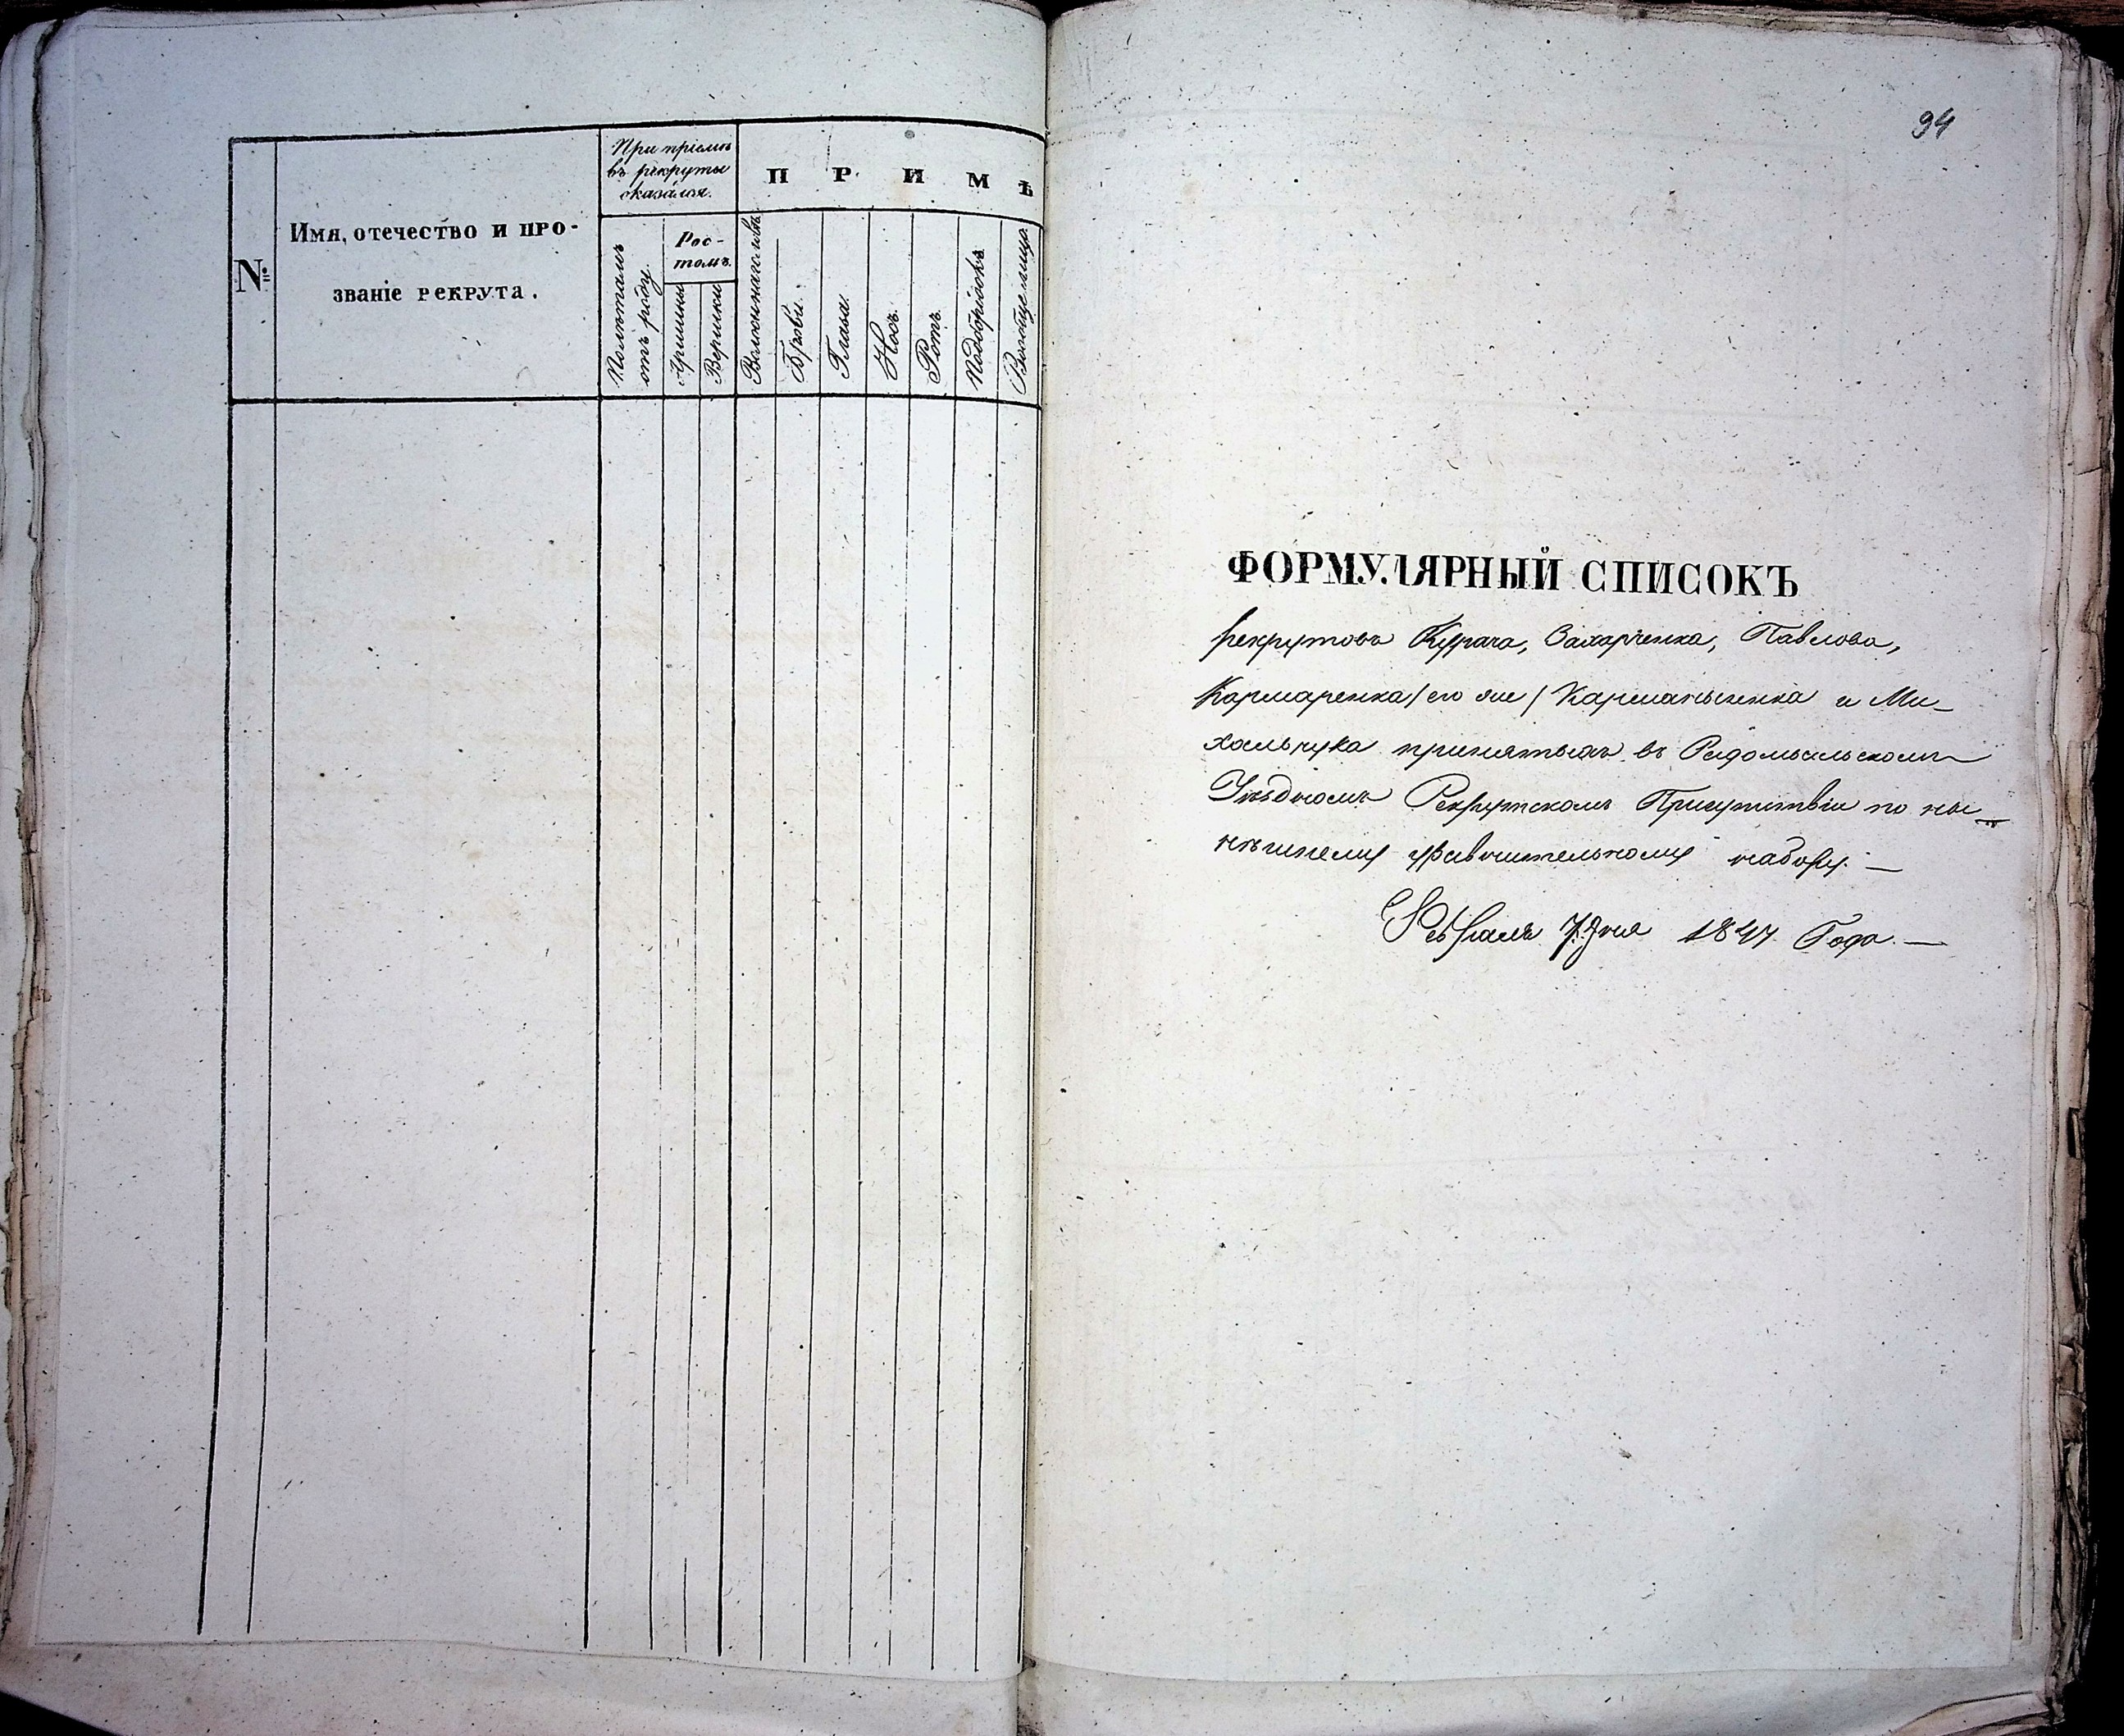 №
Имя, отечество и про-
званіе рекрута.
При пріемѣ
въ рекруты
оказался.
Полѣтамъ
отъ роду.
Рос-
томъ.
Аршины
Вершки
П Р И М Ѣ
Волосы на головѣ
Брови.
Глаза.
Носъ.
Ротъ.
Подбородокъ
Вообще лицо.
94
ФОРМУЛЯРНЫЙ СПИСОКЪ
рекрутовъ Курача, Захарченка, Павлова,
Кармаренка / его же / Карманыенка и Ми-
хальчука принятыхъ въ Радомысльскомъ
Уѣздномъ Рекрутскомъ Присутствіи по ны-
нѣшнему уравнительному набору. —
Февраля 7 дня 1847 Года. —